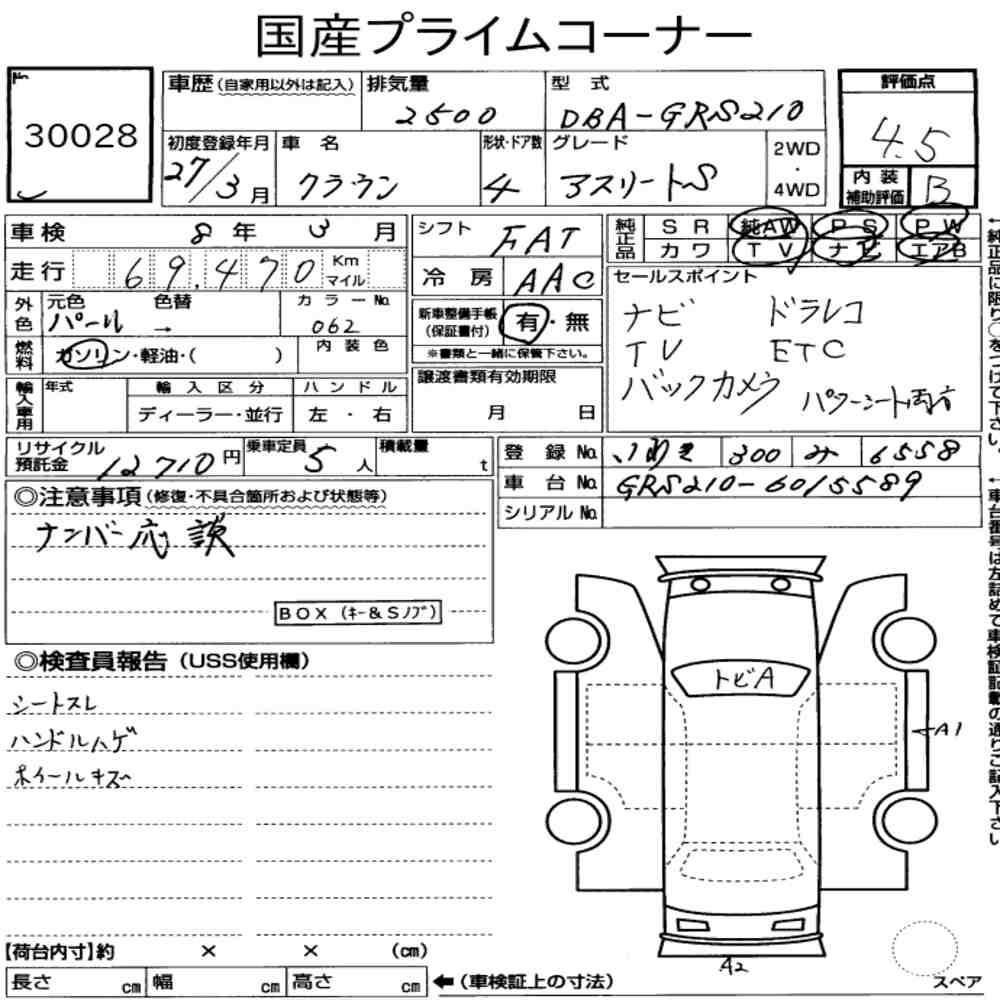 国産プライムコーナー
No.
30028
車歴(自家用以外は記入) 排気量 2500 型式 DBA-GRS210
評価点 4.5
初度登録年月 27/3月 車名 クラウン 形状・ドア数 4 グレード アスリートS 2WD・4WD
内装補助評価 B
車検 8年 3月
走行 69,470 Km マイル
シフト FAT
冷房 AAC
純正品 SR 純AW PS PW
カワ TV ナビ エアB
←純正品に限り○をつけて下さい。
外色 元色 パール 色替 → カラーNo. 062
燃料 ガソリン・軽油・( ) 内装色
新車整備手帳(保証書付) 有・無
※書類と一緒に保管下さい。
セールスポイント
ナビ ドラレコ
TV ETC
バックカメラ パワーシート両方
輸入車用 年式 輸入区分 ディーラー・並行 ハンドル 左・右
譲渡書類有効期限 月 日
リサイクル預託金 12710円 乗車定員 5人 積載量 t
登録No. 300 み 6558
車台No. GRS210-6015589
シリアルNo.
←車台番号は左詰めで車検証記載の通りご記入下さい
◎注意事項(修復・不具合箇所および状態等)
ナンバー応談
BOX (キー&Sノブ)
◎検査員報告(USS使用欄)
シートスレ
ハンドルハゲ
ホイールキズ
トビA
A1
A2
スペア
【荷台内寸】約 × × (cm)
長さ cm 幅 cm 高さ cm ←(車検証上の寸法)